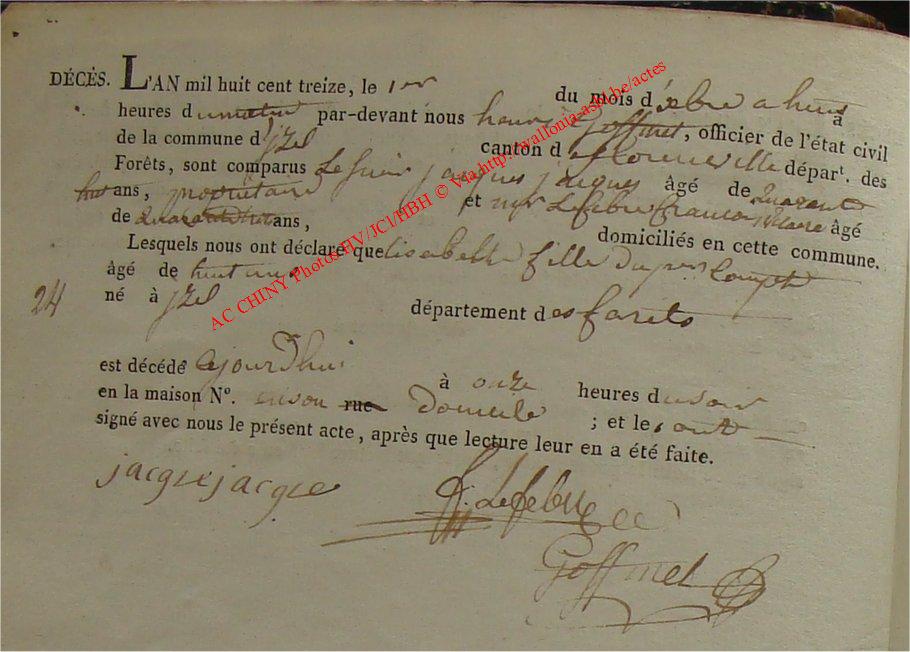 DÉCÈS. L'AN mil huit cent treize, le 1er du mois d'xbre a huit à
heures du matin par-devant nous henri Goffinet, officier de l'état civil
de la commune d'jzel canton d e florenville départ. des
Forêts, sont comparus Le Sieur jacques jacques âgé de quarant
huit ans, propriétaire et mr Lefebvre francois âgé
de ans, domiciliés en cette commune.
Lesquels nous ont déclaré que Elisabethe fille du pr.
âgé de huit ans
24 né à jzel département des forêts
est décédé ajourd'hui à onze heures du soir
en la maison N°. en son rue Domicile ; et le sont
signé avec nous le présent acte, après que lecture leur en a été faite.
jacque jacque G. Lefebvre
Goffinet
AC CHINY Photos HV/JCl/HBH © Via http://wallonia-asbl.be/actes